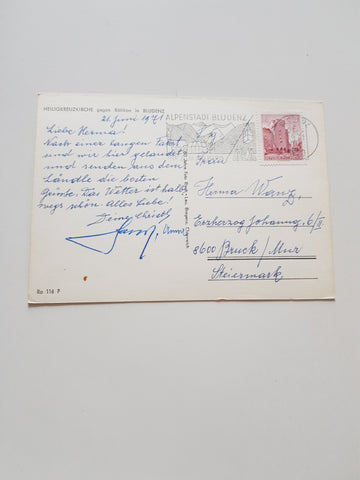 HEILIGKREUZKIRCHE gegen Rätikon in BLUDENZ
21. Juni 1971
Liebe Herma!
Nach einer langen Fahrt
sind wir hier gelandet
und senden aus dem
Ländle die besten
Grüsse. Das Wetter ist halb
wegs schön. Alles Liebe!
ALPENSTADT BLUDENZ
Herma Wanz,
Erzherzog Johanng. 6/II
8600 Bruck/Mur
Steiermark
Ra 114 P